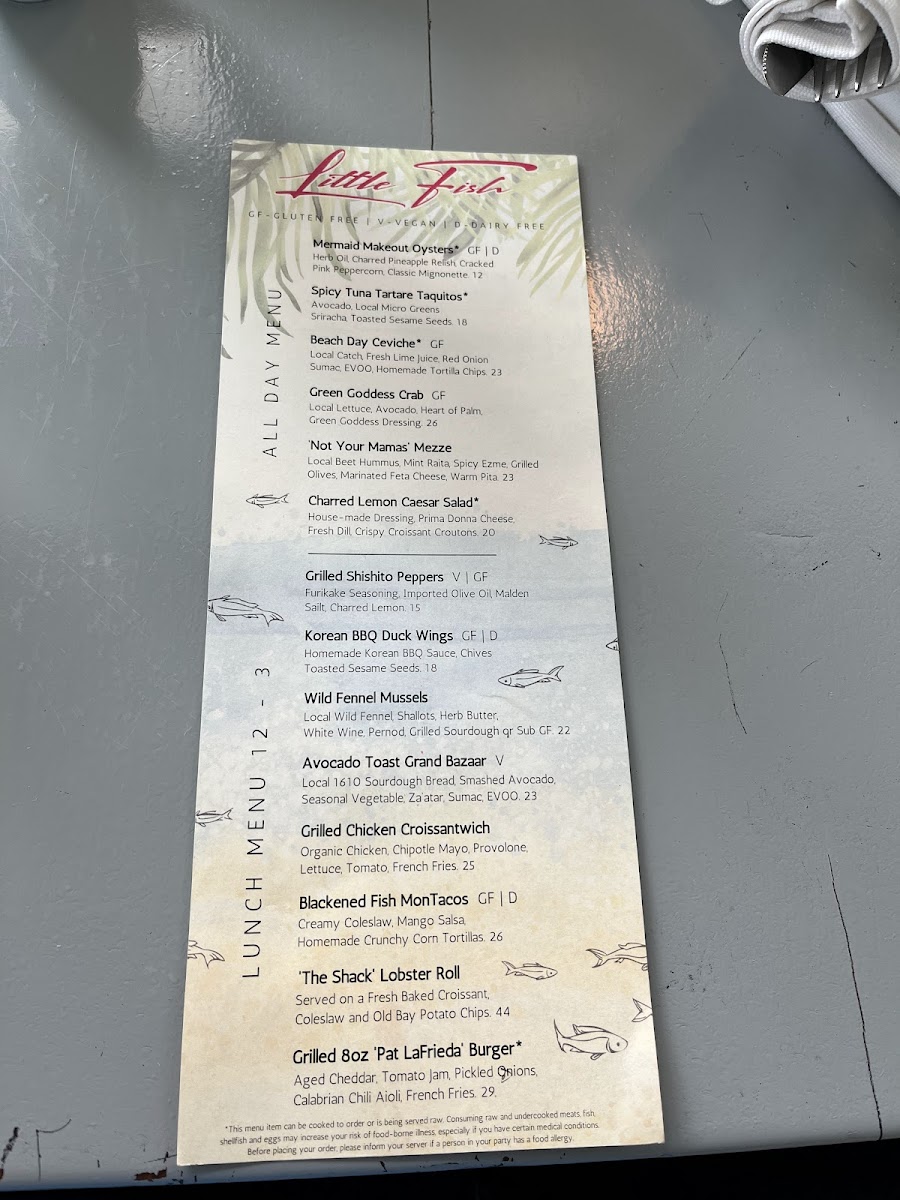 Little Fish
GF-GLUTEN FREE | V-VEGAN | D-DAIRY FREE
ALL DAY MENU
Mermaid Makeout Oysters* GF | D
Herb Oil, Charred Pineapple Relish, Cracked
Pink Peppercorn, Classic Mignonette. 12
Spicy Tuna Tartare Taquitos*
Avocado, Local Micro Greens
Sriracha, Toasted Sesame Seeds. 18
Beach Day Ceviche* GF
Local Catch, Fresh Lime Juice, Red Onion
Sumac, EVOO, Homemade Tortilla Chips. 23
Green Goddess Crab GF
Local Lettuce, Avocado, Heart of Palm,
Green Goddess Dressing. 26
'Not Your Mamas' Mezze
Local Beet Hummus, Mint Raita, Spicy Ezme, Grilled
Olives, Marinated Feta Cheese, Warm Pita. 23
Charred Lemon Caesar Salad*
House-made Dressing, Prima Donna Cheese,
Fresh Dill, Crispy Croissant Croutons. 20
LUNCH MENU 12 - 3
Grilled Shishito Peppers V | GF
Furikake Seasoning, Imported Olive Oil, Malden
Sailt, Charred Lemon. 15
Korean BBQ Duck Wings GF | D
Homemade Korean BBQ Sauce, Chives
Toasted Sesame Seeds. 18
Wild Fennel Mussels
Local Wild Fennel, Shallots, Herb Butter,
White Wine, Pernod, Grilled Sourdough qr Sub GF. 22
Avocado Toast Grand Bazaar V
Local 1610 Sourdough Bread, Smashed Avocado,
Seasonal Vegetable, Za'atar, Sumac, EVOO. 23
Grilled Chicken Croissantwich
Organic Chicken, Chipotle Mayo, Provolone,
Lettuce, Tomato, French Fries. 25
Blackened Fish MonTacos GF | D
Creamy Coleslaw, Mango Salsa,
Homemade Crunchy Corn Tortillas. 26
'The Shack' Lobster Roll
Served on a Fresh Baked Croissant,
Coleslaw and Old Bay Potato Chips. 44
Grilled 8oz 'Pat LaFrieda' Burger*
Aged Cheddar, Tomato Jam, Pickled Onions,
Calabrian Chili Aioli, French Fries. 29.
*This menu item can be cooked to order or is being served raw. Consuming raw and undercooked meats, fish,
shellfish and eggs may increase your risk of food-borne illness, especially if you have certain medical conditions.
Before placing your order, please inform your server if a person in your party has a food allergy.